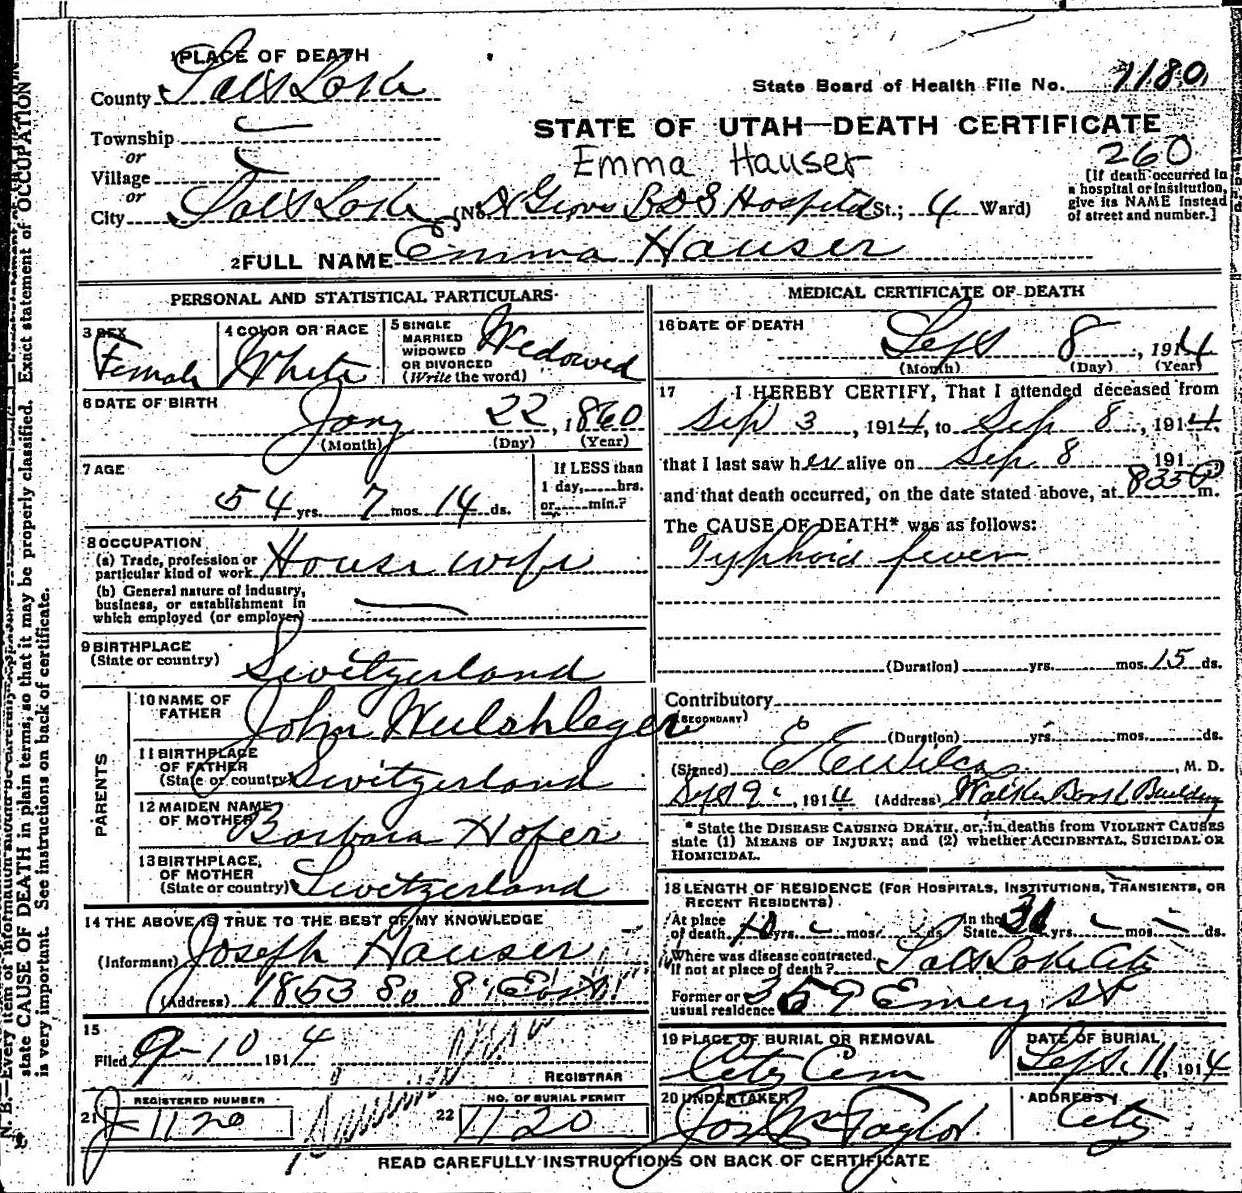 1 PLACE OF DEATH
County Salt Lake
State Board of Health File No. 1180
Township
or
Village
or
STATE OF UTAH—DEATH CERTIFICATE
Emma Hauser
260
[If death occurred in a hospital or institution, give its NAME instead of street and number.]
City Salt Lake (No. LDS Hospital St.; 4 Ward)
2 FULL NAME Emma Hauser
PERSONAL AND STATISTICAL PARTICULARS
3 SEX Female
4 COLOR OR RACE White
5 SINGLE MARRIED WIDOWED OR DIVORCED (Write the word) Widowed
6 DATE OF BIRTH Jany 22, 1860
(Month) (Day) (Year)
7 AGE 54 yrs. 7 mos. 14 ds.
If LESS than 1 day, hrs. or min.?
8 OCCUPATION
(a) Trade, profession or particular kind of work House wife
(b) General nature of industry, business, or establishment in which employed (or employer)
9 BIRTHPLACE
(State or country) Switzerland
PARENTS
10 NAME OF FATHER John
11 BIRTHPLACE OF FATHER (State or country) Switzerland
12 MAIDEN NAME OF MOTHER Barbara Hofer
13 BIRTHPLACE OF MOTHER (State or country) Switzerland
14 THE ABOVE IS TRUE TO THE BEST OF MY KNOWLEDGE
(Informant) Joseph Hauser
(Address) 1853 So 8 East
15
Filed 9-10 1914
REGISTRAR
21 REGISTERED NUMBER J-1120
22 NO. OF BURIAL PERMIT 1120
MEDICAL CERTIFICATE OF DEATH
16 DATE OF DEATH
Sept 8, 1914
(Month) (Day) (Year)
17 I HEREBY CERTIFY, That I attended deceased from
Sep 3, 1914, to Sep 8, 1914.
that I last saw her alive on Sep 8 191
and that death occurred, on the date stated above, at 835 P m.
The CAUSE OF DEATH* was as follows:
Typhoid fever
(Duration) yrs. mos. 15 ds.
Contributory
(SECONDARY)
(Duration) yrs. mos. ds.
(Signed) E E Wilcox, M. D.
Sept 9, 1914 (Address) Walker Bank Building
* State the DISEASE CAUSING DEATH, or, in deaths from VIOLENT CAUSES state (1) MEANS OF INJURY; and (2) whether ACCIDENTAL, SUICIDAL OR HOMICIDAL.
18 LENGTH OF RESIDENCE (FOR HOSPITALS, INSTITUTIONS, TRANSIENTS, OR RECENT RESIDENTS).
At place of death yrs. mos. ds. In the State yrs. mos. ds.
Where was disease contracted, if not at place of death? Salt Lake City
Former or usual residence 359 Emery St
19 PLACE OF BURIAL OR REMOVAL City Cem
DATE OF BURIAL Sept. 11, 1914
20 UNDERTAKER Jos Wm Taylor
ADDRESS City
READ CAREFULLY INSTRUCTIONS ON BACK OF CERTIFICATE
N. B.—Every item of information should be carefully
state CAUSE OF DEATH in plain terms, so that it may be properly classified. Exact statement of OCCUPATION
is very important. See instructions on back of certificate.